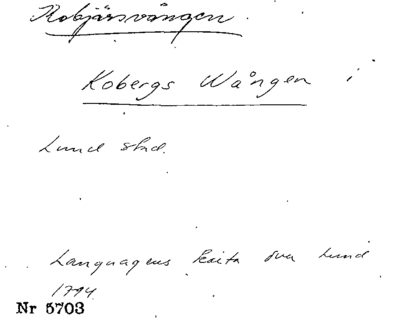 Kobjärsvången
Kobergs Wången i
Lund stad.
Languagens karta över Lund
1794
Nr 5703